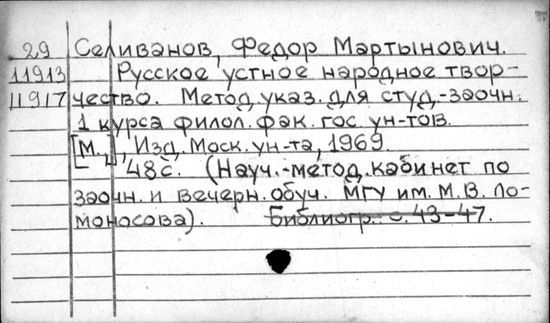 29 Селиванов, Федор Мартынович.
11913 Русское устное народное твор-
11917 чество. Метод. указ. для студ.-заочн.
1 курса филол. фак. гос. ун-тов.
[М.], Изд. Моск. ун-та, 1969.
48с. (Науч.-метод. кабинет по
заочн. и вечерн. обуч. МГУ им. М.В. Ло-
моносова). Библиогр.: с. 43-47.